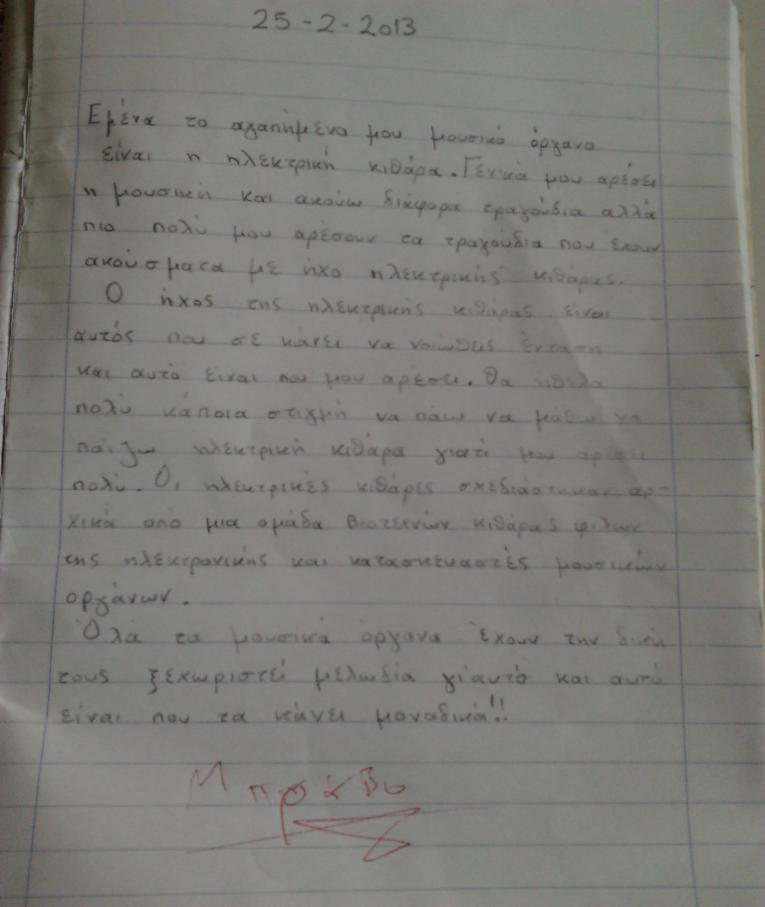 25-2-2013
Εμένα το αγαπημένο μου μουσικό όργανο
είναι η ηλεκτρική κιθάρα. Γενικά μου αρέσει
η μουσική και ακούω διάφορα τραγούδια αλλά
πιο πολύ μου αρέσουν τα τραγούδια που έχουν
ακούσματα με ήχο ηλεκτρικής κιθάρας.
Ο ήχος της ηλεκτρικής κιθάρας είναι
αυτός που σε κάνει να νοιώθεις ένταση
και αυτό είναι που μου αρέσει. Θα ήθελα
πολύ κάποια στιγμή να πάω να μάθω να
παίζω ηλεκτρική κιθάρα γιατί μου αρέσει
πολύ. Οι ηλεκτρικές κιθάρες σχεδιάστηκαν αρ-
χικά από μια ομάδα βιοτεινών κιθάρας φίλων
της ηλεκτρονικής και κατασκευαστές μουσικών
οργάνων.
Όλα τα μουσικά όργανα έχουν την δική
τους ξεχωριστεί μελωδία γι'αυτό και αυτό
είναι που τα κάνει μοναδικά!!
Μπράβο